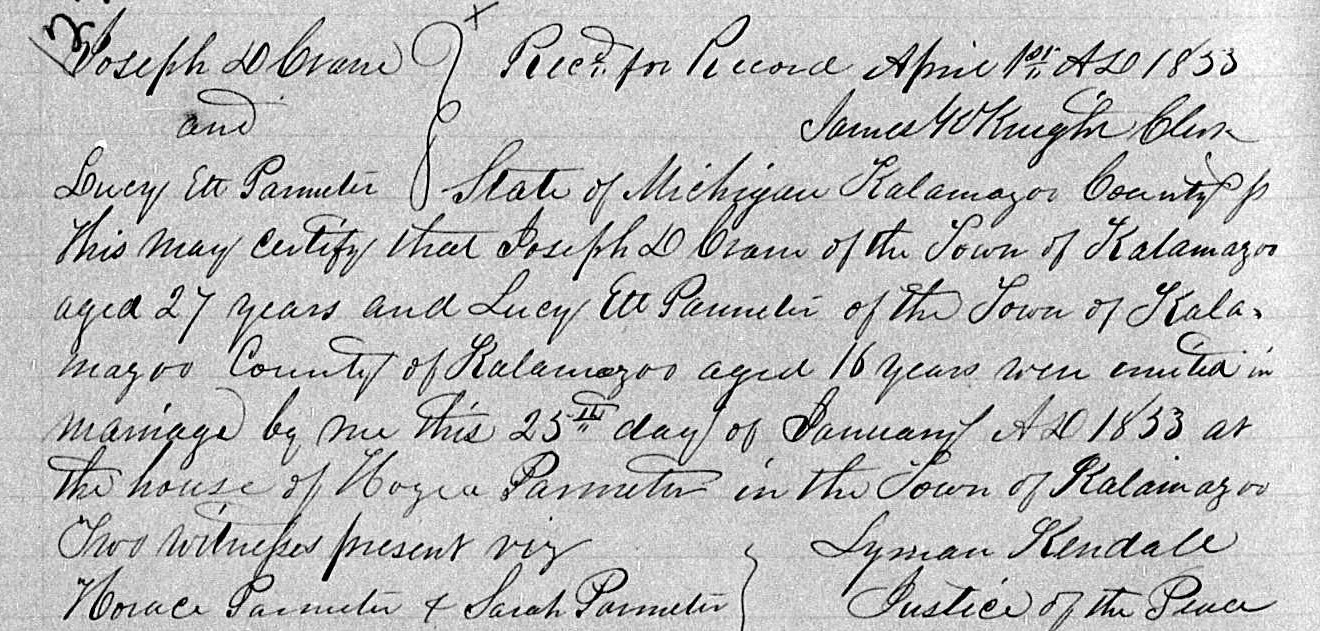 Joseph D Crane } Recd. for Record April 1st AD 1853
and James W Knight Clerk
Lucy Ett Parmeter } State of Michigan Kalamazoo County ss
This may certify that Joseph D Crane of the Town of Kalamazoo
aged 27 years and Lucy Ett Parmeter of the Town of Kala-
mazoo County of Kalamazoo aged 16 years were united in
marriage by me this 25th day of January AD 1853 at
the house of Hozea Parmeter in the Town of Kalamazoo
Two witnesses present viz } Lyman Kendall
Horace Parmeter & Sarah Parmeter } Justice of the Peace